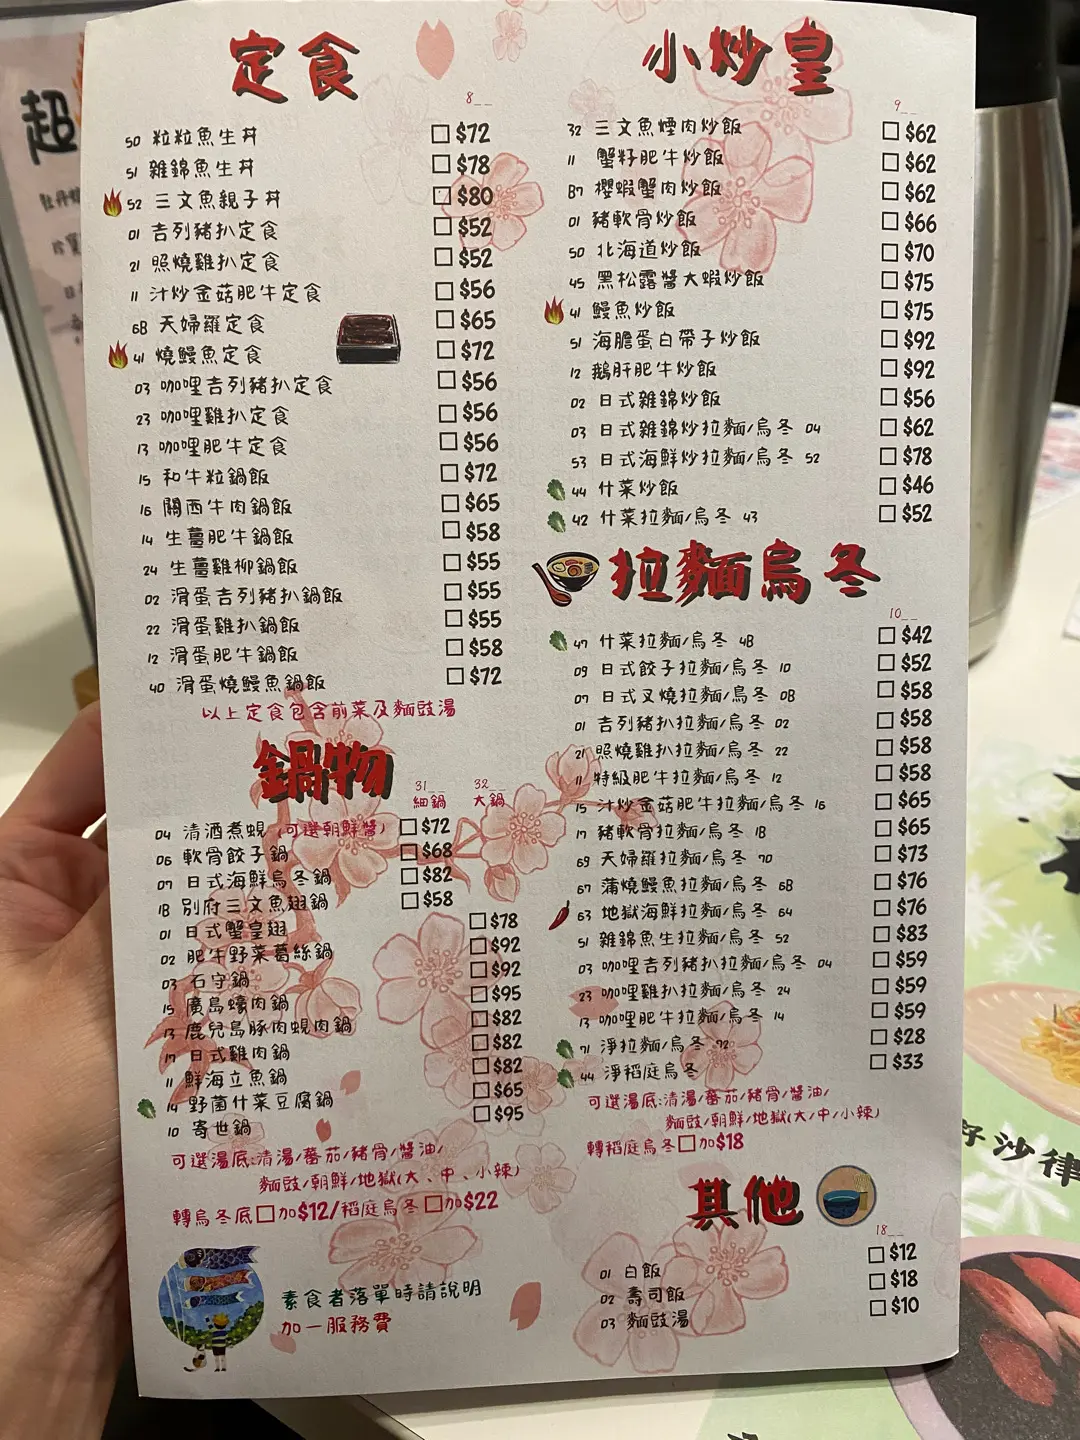 定食
8__
50 粒粒魚生丼 □ $72
51 雜錦魚生丼 □ $78
52 三文魚親子丼 □ $80
01 吉列豬扒定食 □ $52
21 照燒雞扒定食 □ $52
11 汁炒金菇肥牛定食 □ $56
6B 天婦羅定食 □ $65
41 燒鰻魚定食 □ $72
03 咖哩吉列豬扒定食 □ $56
23 咖哩雞扒定食 □ $56
13 咖哩肥牛定食 □ $56
15 和牛粒鍋飯 □ $72
16 關西牛肉鍋飯 □ $65
14 生薑肥牛鍋飯 □ $58
24 生薑雞柳鍋飯 □ $55
02 滑蛋吉列豬扒鍋飯 □ $55
22 滑蛋雞扒鍋飯 □ $55
12 滑蛋肥牛鍋飯 □ $58
40 滑蛋燒鰻魚鍋飯 □ $72
以上定食包含前菜及麵豉湯
鍋物
31__ 32__
細鍋 大鍋
04 清酒煮蜆 (可選朝鮮醬) □ $72
06 軟骨餃子鍋 □ $68
07 日式海鮮烏冬鍋 □ $82
1B 別府三文魚翅鍋 □ $58
01 日式蟹皇翅 □ $78
02 肥牛野菜葛絲鍋 □ $92
03 石守鍋 □ $92
15 廣島蠔肉鍋 □ $95
13 鹿兒島豚肉蜆肉鍋 □ $82
17 日式雞肉鍋 □ $82
11 鮮海立魚鍋 □ $82
14 野菌什菜豆腐鍋 □ $65
10 寄世鍋 □ $95
可選湯底:清湯/蕃茄/豬骨/醬油/
麵豉/朝鮮/地獄(大、中、小辣)
轉烏冬底□加$12/稻庭烏冬□加$22
素食者落單時請說明
加一服務費
小炒皇
9__
32 三文魚煙肉炒飯 □ $62
11 蟹籽肥牛炒飯 □ $62
B7 櫻蝦蟹肉炒飯 □ $62
01 豬軟骨炒飯 □ $66
50 北海道炒飯 □ $70
45 黑松露醬大蝦炒飯 □ $75
41 鰻魚炒飯 □ $75
51 海膽蛋白帶子炒飯 □ $92
12 鵝肝肥牛炒飯 □ $92
02 日式雜錦炒飯 □ $56
03 日式雜錦炒拉麵/烏冬 04 □ $62
53 日式海鮮炒拉麵/烏冬 52 □ $78
44 什菜炒飯 □ $46
42 什菜拉麵/烏冬 43 □ $52
拉麵烏冬
10__
47 什菜拉麵/烏冬 4B □ $42
09 日式餃子拉麵/烏冬 10 □ $52
07 日式叉燒拉麵/烏冬 0B □ $58
01 吉列豬扒拉麵/烏冬 02 □ $58
21 照燒雞扒拉麵/烏冬 22 □ $58
11 特級肥牛拉麵/烏冬 12 □ $58
15 汁炒金菇肥牛拉麵/烏冬 16 □ $65
17 豬軟骨拉麵/烏冬 1B □ $65
69 天婦羅拉麵/烏冬 70 □ $73
67 蒲燒鰻魚拉麵/烏冬 6B □ $76
63 地獄海鮮拉麵/烏冬 64 □ $76
51 雜錦魚生拉麵/烏冬 52 □ $83
03 咖哩吉列豬扒拉麵/烏冬 04 □ $59
23 咖哩雞扒拉麵/烏冬 24 □ $59
13 咖哩肥牛拉麵/烏冬 14 □ $59
71 淨拉麵/烏冬 72 □ $28
44 淨稻庭烏冬 □ $33
可選湯底:清湯/蕃茄/豬骨/醬油/
麵豉/朝鮮/地獄(大/中/小辣)
轉稻庭烏冬□加$18
其他
18__
01 白飯 □ $12
02 壽司飯 □ $18
03 麵豉湯 □ $10
超
沙律